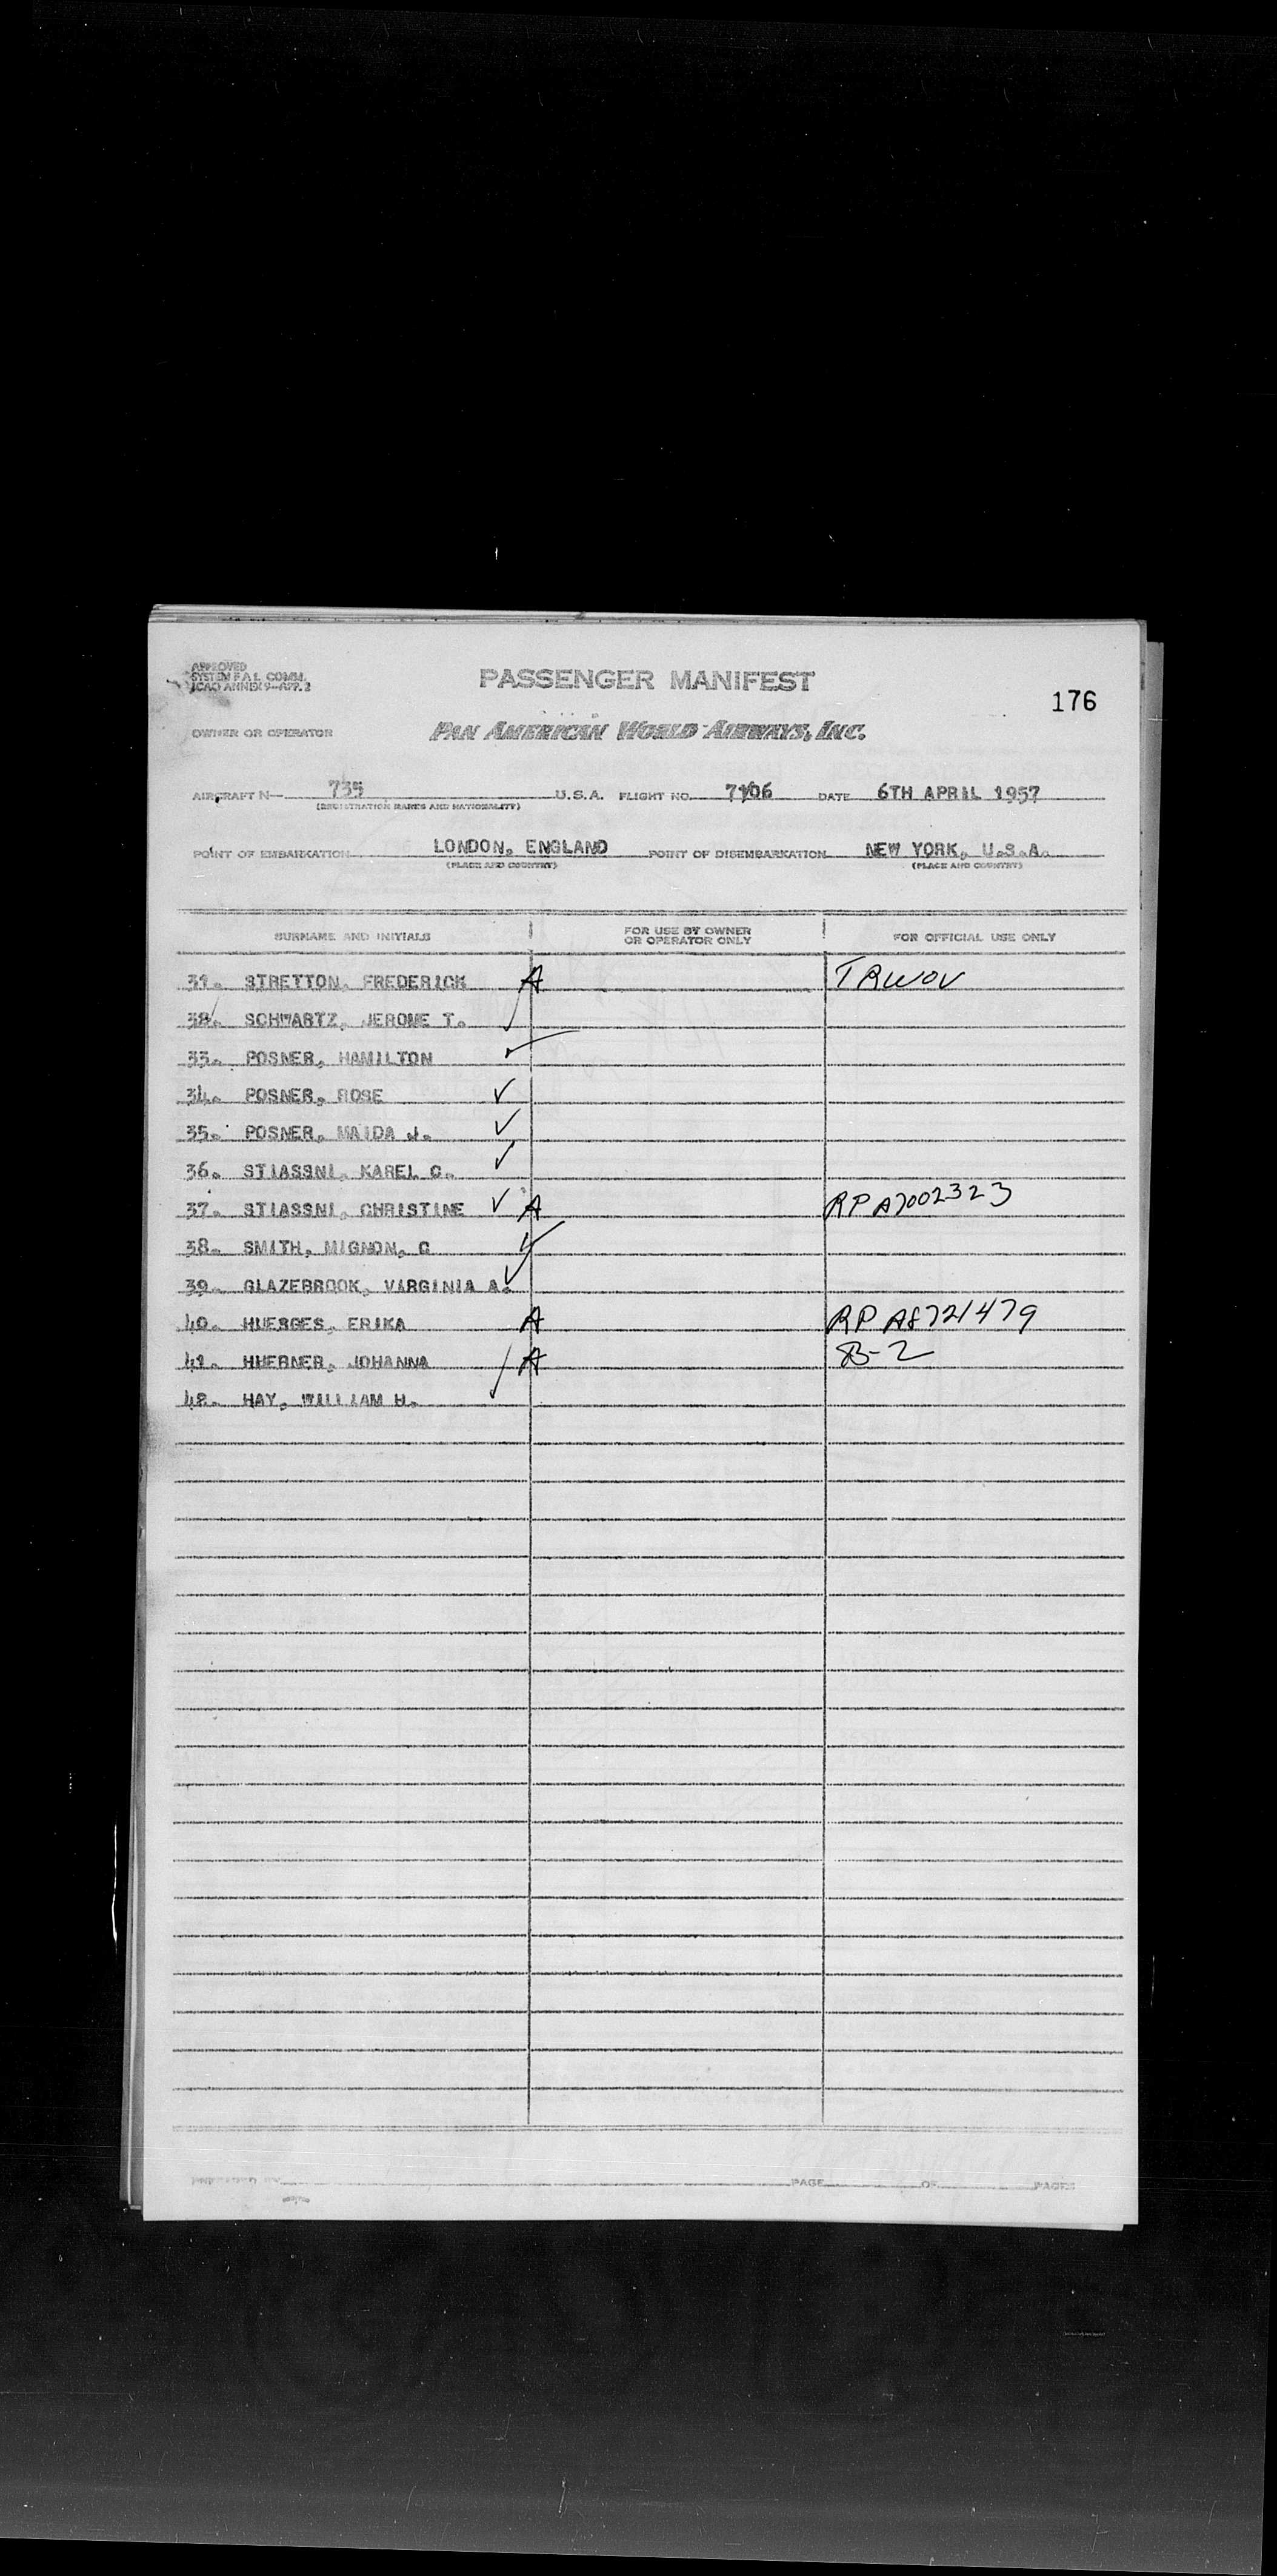 APPROVED
SYSTEM F.A.L. COMM.
ICAO ANNEX 9-APP. 2
PASSENGER MANIFEST
176
OWNER OR OPERATOR PAN AMERICAN WORLD AIRWAYS, INC.
AIRCRAFT N— 735 U.S.A. FLIGHT NO. 7106 DATE 6TH APRIL 1957
(REGISTRATION MARKS AND NATIONALITY)
POINT OF EMBARKATION LONDON, ENGLAND POINT OF DISEMBARKATION NEW YORK, U.S.A.
(PLACE AND COUNTRY) (PLACE AND COUNTRY)
SURNAME AND INITIALS FOR USE BY OWNER OR OPERATOR ONLY FOR OFFICIAL USE ONLY
31. STRETTON, FREDERICK A TRWOV
32. SCHWARTZ, JEROME T. ✓
33. POSNER, HAMILTON ✓
34. POSNER, ROSE ✓
35. POSNER, MAIDA J. ✓
36. STIASSNI, KAREL C. ✓
37. STIASSNI, CHRISTINE ✓ A RP A7002323
38. SMITH, MIGNON, C ✓
39. GLAZEBROOK, VIRGINIA A. ✓
40. HUESGES, ERIKA A RP A8721479
41. HUEBNER, JOHANNA A B-2
42. HAY, WILLIAM H. ✓
PREPARED BY PAGE OF PAGES